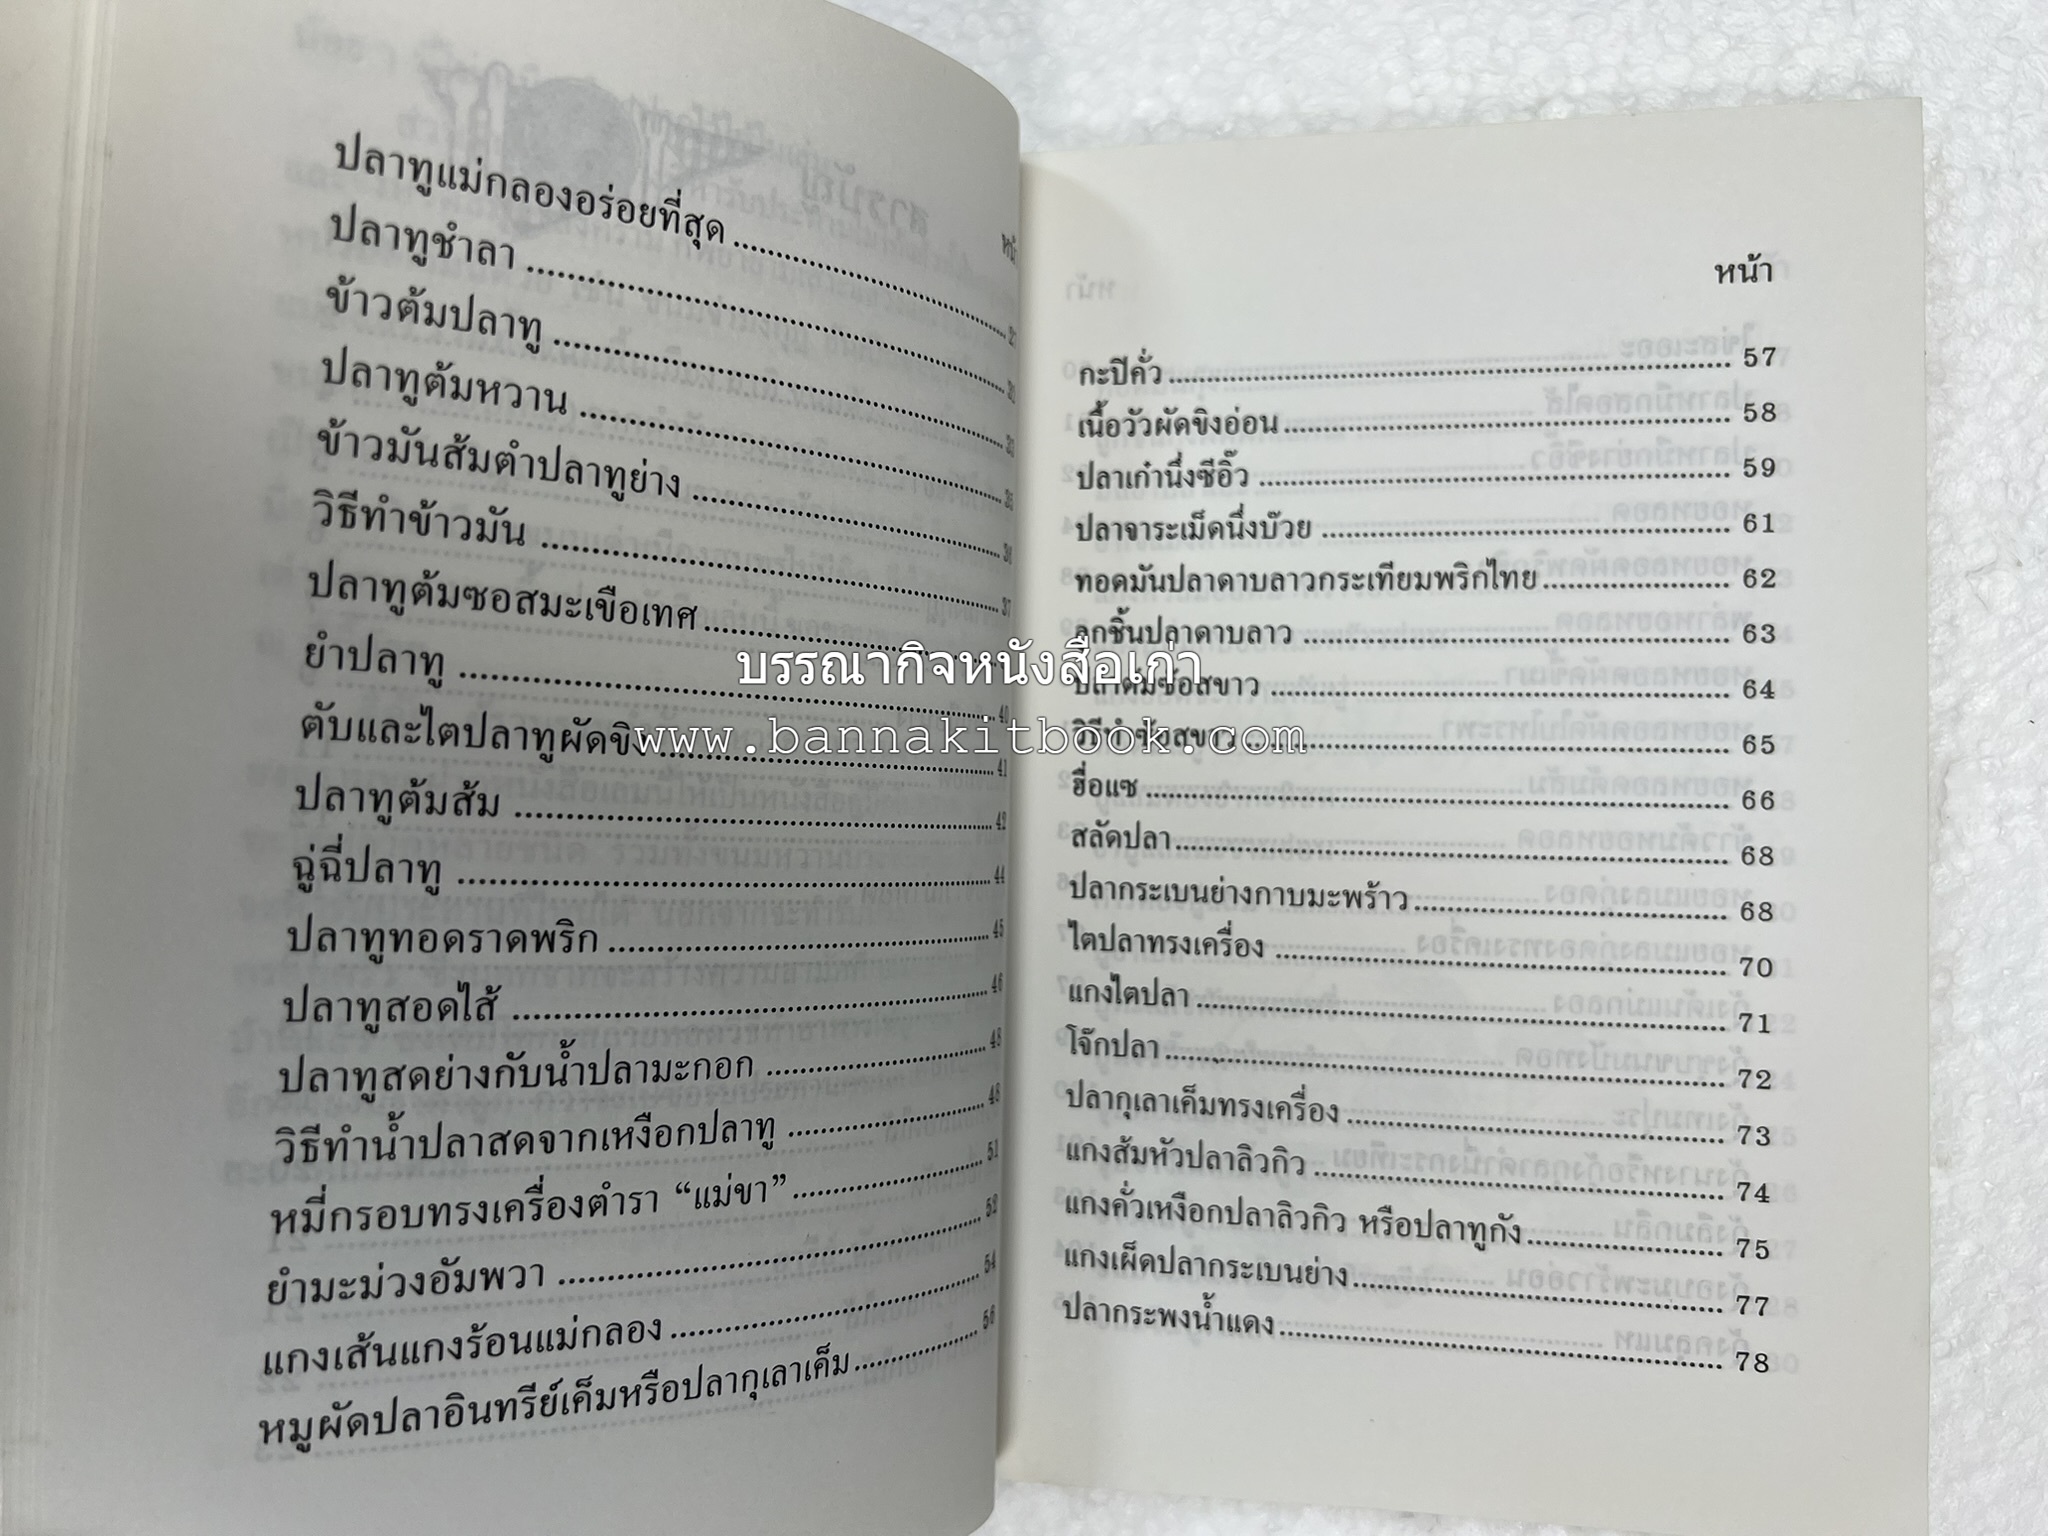 หน้า
ปลาทูแม่กลองอร่อยที่สุด
ปลาทูชำลา
ข้าวต้มปลาทู
ปลาทูต้มหวาน
ข้าวมันส้มตำปลาทูย่าง
วิธีทำข้าวมัน ........ 37
ปลาทูต้มซอสมะเขือเทศ
ยำปลาทู ........ 40
ตับและไตปลาทูผัดขิง ........ 41
ปลาทูต้มส้ม ........ 42
ฉู่ฉี่ปลาทู ........ 44
ปลาทูทอดราดพริก ........ 45
ปลาทูสอดไส้ ........ 46
ปลาทูสดย่างกับน้ำปลามะกอก ........ 48
วิธีทำน้ำปลาสดจากเหงือกปลาทู ........ 48
หมี่กรอบทรงเครื่องตำรา “แม่ขา” ........ 51
ยำมะม่วงอัมพวา ........ 52
แกงเส้นแกงร้อนแม่กลอง ........ 54
หมูผัดปลาอินทรีย์เค็มหรือปลากุเลาเค็ม ........ 56
หน้า
กะปิคั่ว ........ 57
เนื้อวัวผัดขิงอ่อน ........ 58
ปลาเก๋านึ่งซีอิ๊ว ........ 59
ปลาจาระเม็ดนึ่งบ๊วย ........ 61
ทอดมันปลาดาบลาวกระเทียมพริกไทย ........ 62
ลูกชิ้นปลาดาบลาว ........ 63
ปลาต้มซ้อสขาว ........ 64
วิธีทำซ้อสขาว ........ 65
ฮื่อแซ ........ 66
สลัดปลา ........ 68
ปลากระเบนย่างกาบมะพร้าว ........ 68
ไตปลาทรงเครื่อง ........ 70
แกงไตปลา ........ 71
โจ๊กปลา ........ 72
ปลากุเลาเค็มทรงเครื่อง ........ 73
แกงส้มหัวปลาลิวกิว ........ 74
แกงคั่วเหงือกปลาลิวกิว หรือปลาทูกัง ........ 75
แกงเผ็ดปลากระเบนย่าง ........ 77
ปลากระพงน้ำแดง ........ 78
บรรณากิจหนังสือเก่า
www.bannakitbook.com